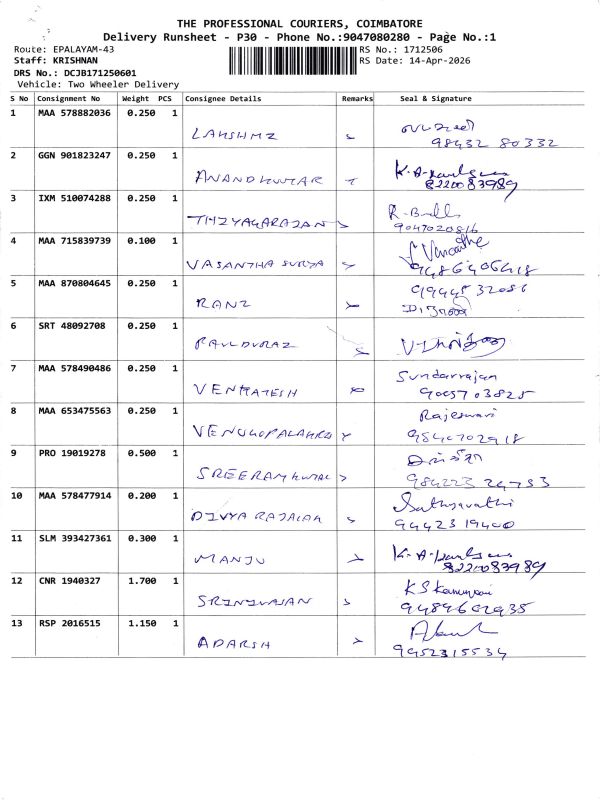 THE PROFESSIONAL COURIERS, COIMBATORE
Delivery Runsheet - P30 - Phone No.:9047080280 - Page No.:1
Route: EPALAYAM-43 RS No.: 1712506
Staff: KRISHNAN RS Date: 14-Apr-2026
DRS No.: DCJB171250601
Vehicle: Two Wheeler Delivery
S No Consignment No Weight PCS Consignee Details Remarks Seal & Signature
1 MAA 578882036 0.250 1
LAKSHMI
98432 80332
2 GGN 901823247 0.250 1
ANANDKUMAR
8220083989
3 IXM 510074288 0.250 1
THIYAGARAJAN
9047020816
4 MAA 715839739 0.100 1
VASANTHA SURYA
9486406418
5 MAA 870804645 0.250 1
RANI
99445 32086
6 SRT 48092708 0.250 1
7 MAA 578490486 0.250 1 Sundarrajan
VENKATESH
9005703825
8 MAA 653475563 0.250 1 Rajeswari
9840702918
9 PRO 19019278 0.500 1
SREERAMKUMAR
98422324753
10 MAA 578477914 0.200 1 Sathyavathi
DIVYA
94423 19400
11 SLM 393427361 0.300 1
MANJU
8220083989
12 CNR 1940327 1.700 1
SRINIVASAN
9489602935
13 RSP 2016515 1.150 1
ADARSH
9952315534